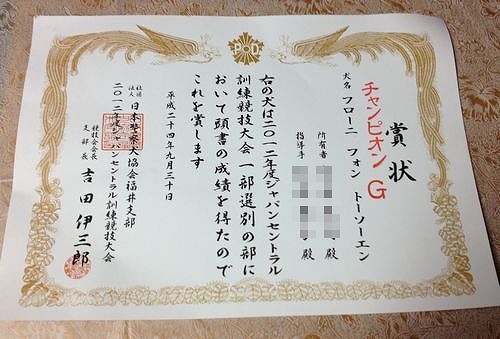 PD
賞状
チャンピオンG
犬名 フローニ フォン トーソーエン
所有者 殿
指導手 殿
右の犬は二〇一二年度ジャパンセントラル
訓練競技大会一部選別の部に
おいて頭書の成績を得たので
これを賞します
平成二十四年九月三十日
社団法人 日本警察犬協会福井支部
二〇一二年度ジャパンセントラル訓練競技大会
競技会会長
支部長 吉田伊三郎